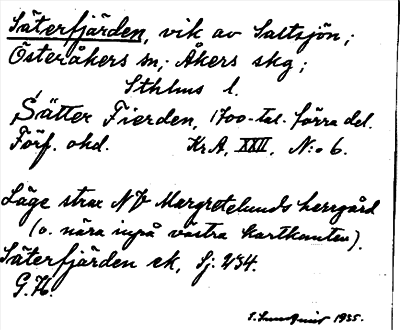 Säterfjärden, vik av Saltsjön;
Österåkers sn; Åkers skg;
Sthlms l.
"Sätter Fierden, 1700-tal. förra del.
Förf. okd. KrA, XXII, N:o 6.
Läge strax NV Margretelunds herrgård
(o. nära inpå västra kartkanten).
Säterfjärden ek, Sj. 234.
G.H.
1935.